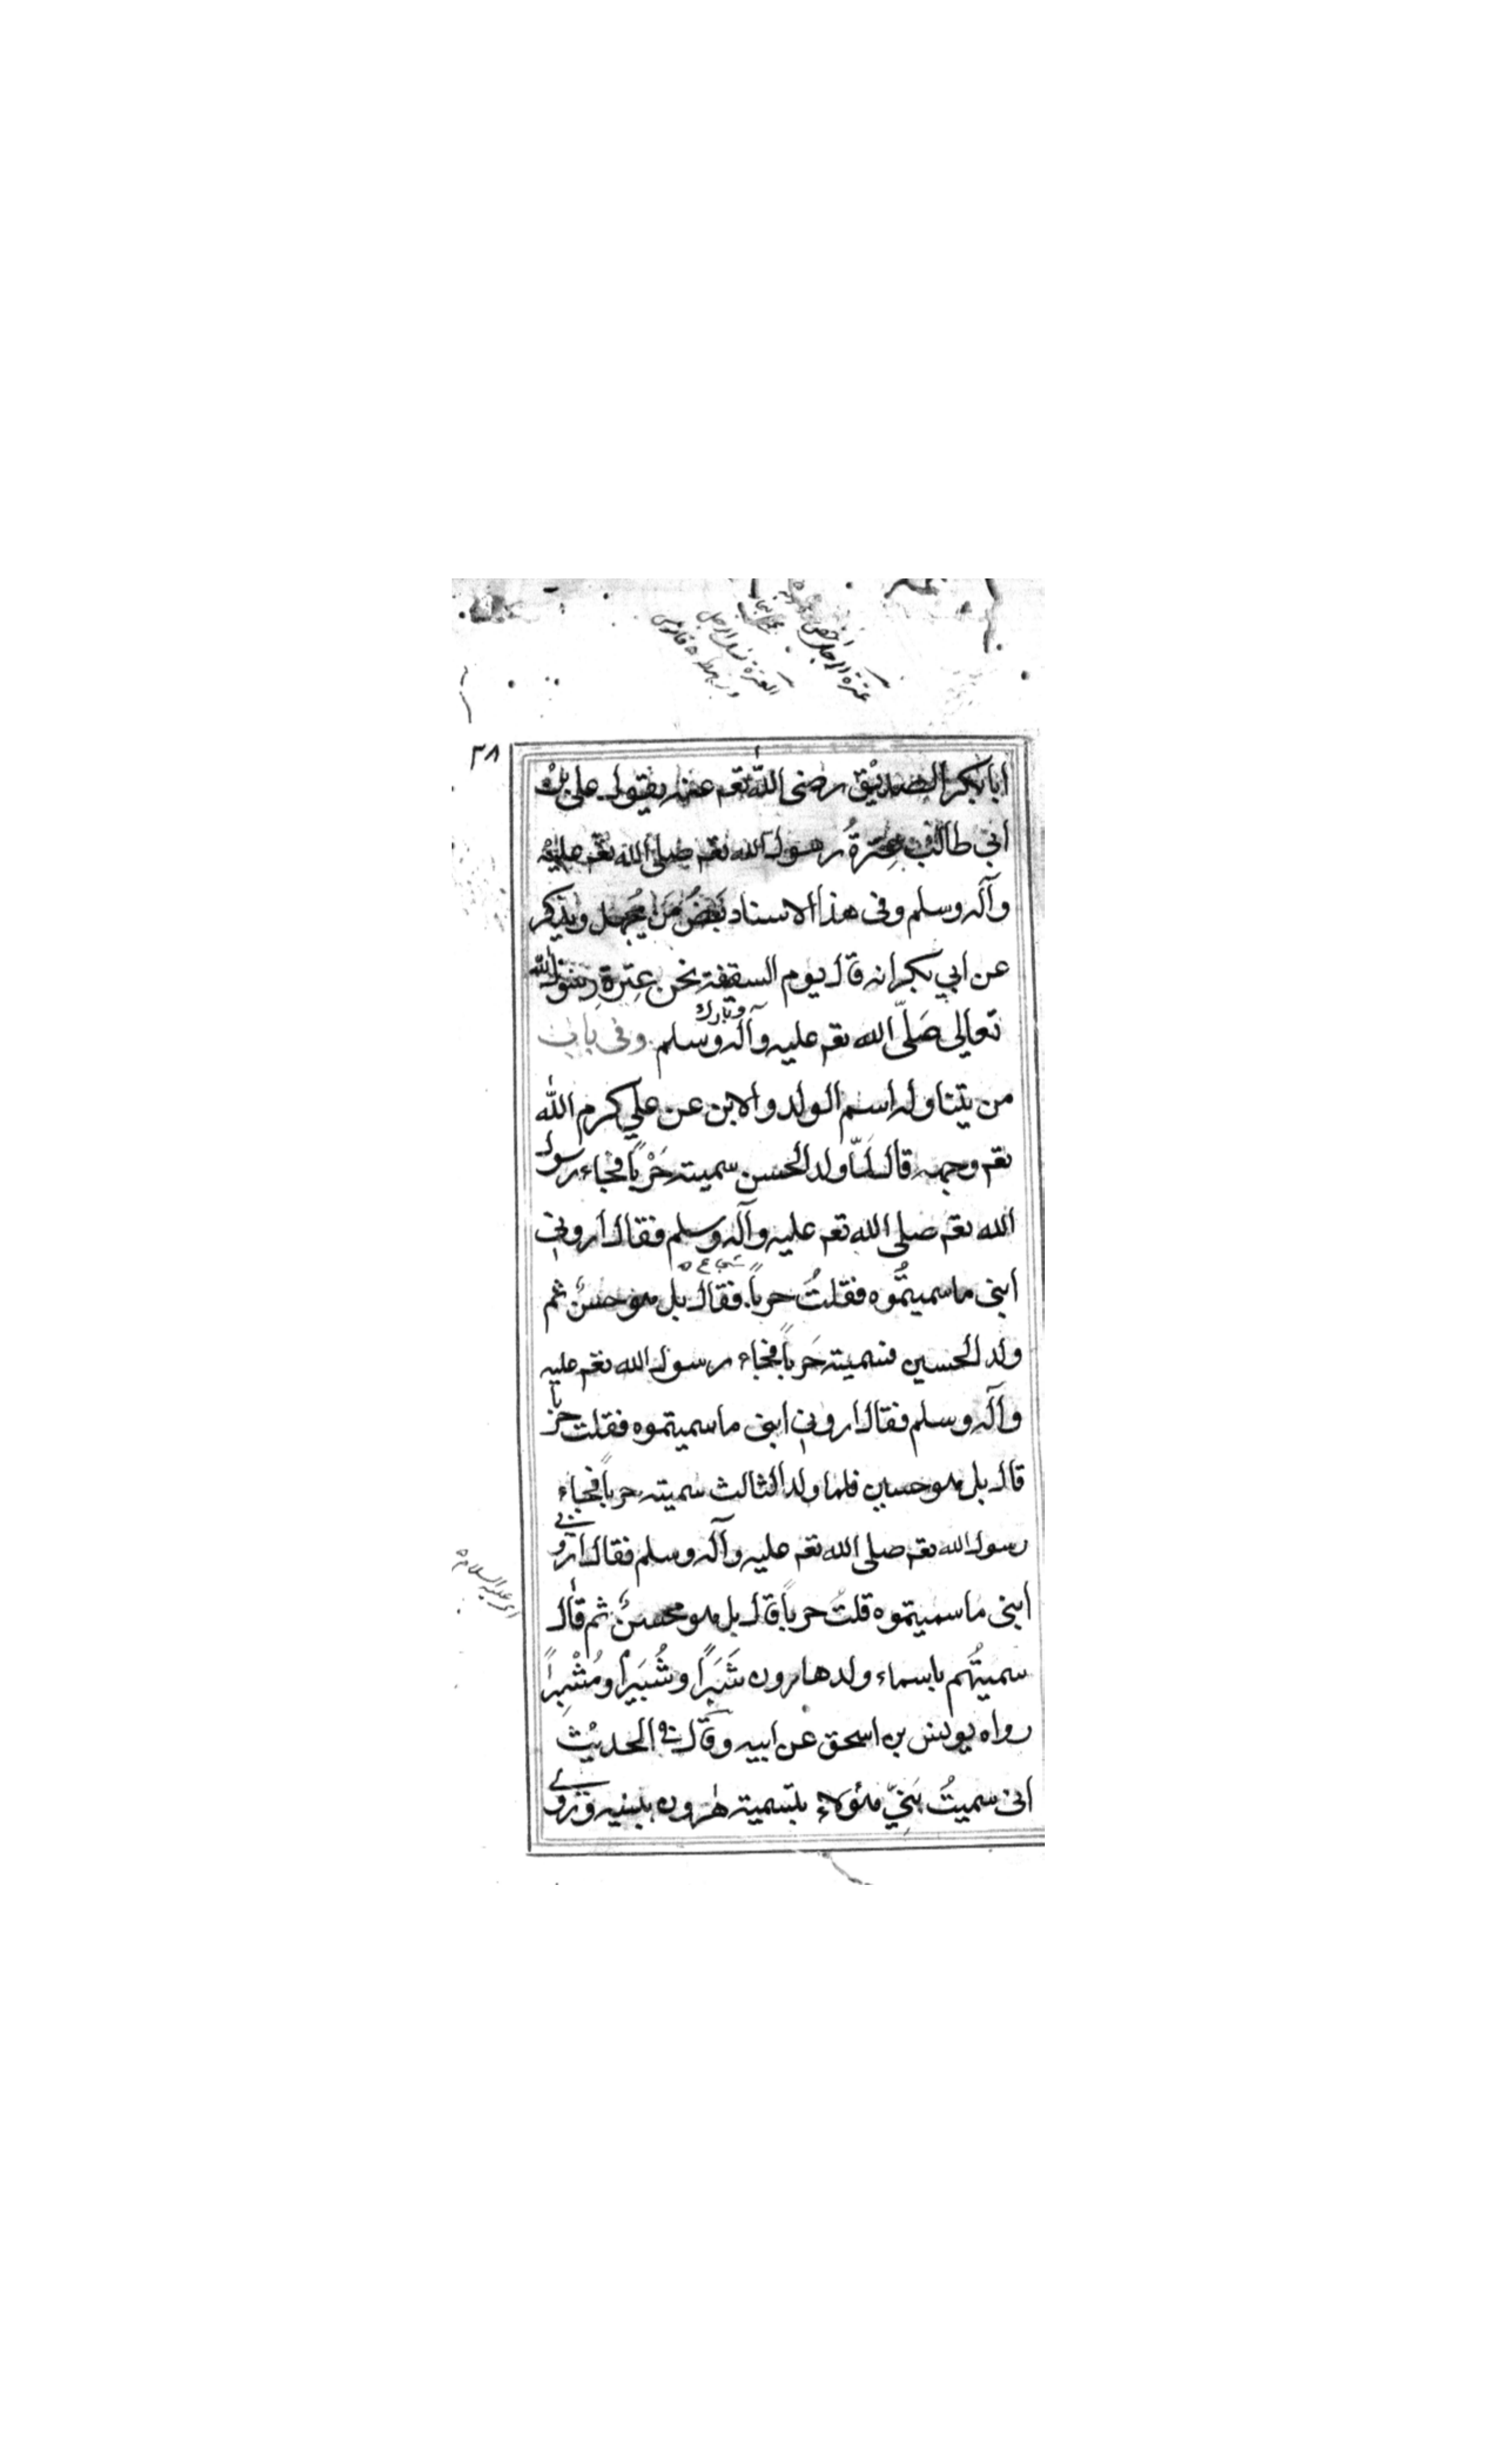 عترة الرجل اخص
العترة نسل الرجل
ورهطه ه قاموس
٣٨
ابا بكر الصديق رضى الله تعم عنه يقول على بن
ابى طالب عِترةُ رسول الله تعم صلى الله تعم عليه
وآله وسلم وفى هذا الاسناد بَعضُ مَن يُجهل ويذكر
عن ابي بكر انه قال يوم السقفة نحن عِترةِ رسول الله
تعالى صَلّى الله تعم عليه وآله وبارك وسلم وفى باب
من يتناوله اسم الولد والابن عن علي كرم الله
تعم وجهه قال لَمّا ولد الحسن سميته حَرْباً فجاء رسول
الله تعم صلى الله تعم عليه وآله وسلم فقال ارونِى
ابنى ما سميتُموه فقلتُ حرباً فقال بل هو حسنٌ ثم
ولد الحسين فسميته حَرباً فجاء رسول الله تعم عليه
وآله وسلم فقال ارونِى ابنى ما سميتموه فقلت حرباً
قال بل هو حسين فلما ولد الثالث سميته حرباً فجاء
رسول الله تعم صلى الله تعم عليه وآله وسلم فقال ارونى
ابنى ما سميتموه قلت حرباً قال بل هو محسنٌ ثم قال
اى عليه السلام ه
سميتُهم باسماء ولد هارون شَبَراً وشُبَيراً ومُشْبِراً
رواه يونس بن اسحق عن ابيه وقال فى الحديث
انى سميتُ بَنِيّ هؤلاء بتسمية هٰرون بنيه وروى